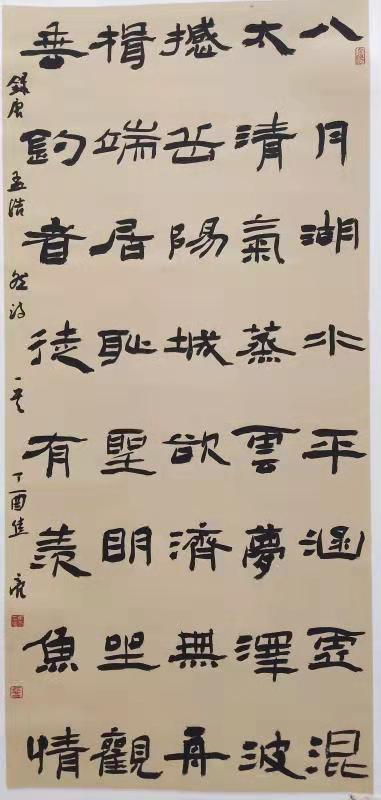 八月湖水平涵虛混
太清氣蒸雲夢澤波
撼岳陽城欲濟無舟
楫端居耻聖明坐觀
垂釣者徒有羨魚情
錄唐孟浩然詩一首丁酉